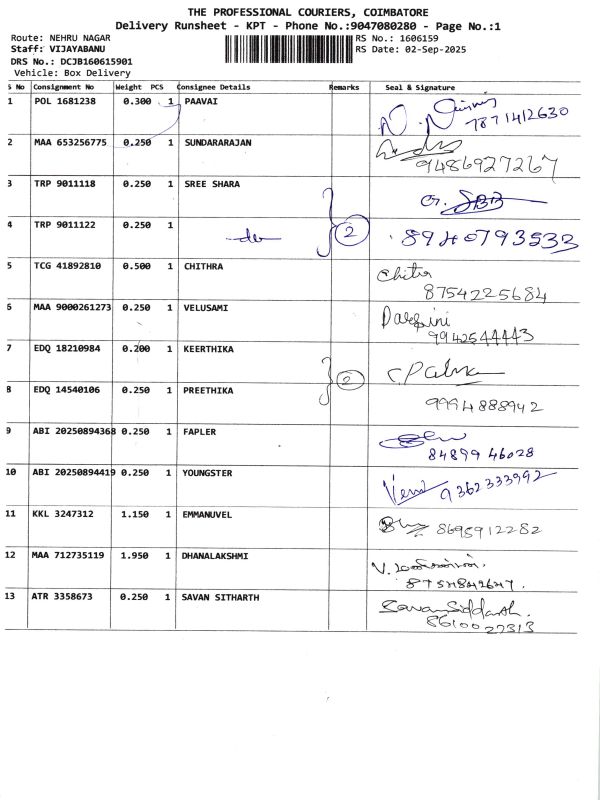 THE PROFESSIONAL COURIERS, COIMBATORE
Delivery Runsheet - KPT - Phone No.:9047080280 - Page No.:1
Route: NEHRU NAGAR RS No.: 1606159
Staff: VIJAYABANU RS Date: 02-Sep-2025
DRS No.: DCJB160615901
Vehicle: Box Delivery
S No Consignment No Weight PCS Consignee Details Remarks Seal & Signature
1 POL 1681238 0.300 1 PAAVAI
7871412630
2 MAA 653256775 0.250 1 SUNDARARAJAN
9486927267
3 TRP 9011118 0.250 1 SREE SHARA
4 TRP 9011122 0.250 1 -do- 2 8940793533
5 TCG 41892810 0.500 1 CHITHRA Chitra
8754225684
6 MAA 9000261273 0.250 1 VELUSAMI
9942544443
7 EDQ 18210984 0.200 1 KEERTHIKA
2
8 EDQ 14540106 0.250 1 PREETHIKA
9994888942
9 ABI 20250894368 0.250 1 FAPLER
84899 46028
10 ABI 20250894419 0.250 1 YOUNGSTER 9362333992
11 KKL 3247312 1.150 1 EMMANUVEL 8695912282
12 MAA 712735119 1.950 1 DHANALAKSHMI
8754842647.
13 ATR 3358673 0.250 1 SAVAN SITHARTH Savan Siddarth.
8610027313